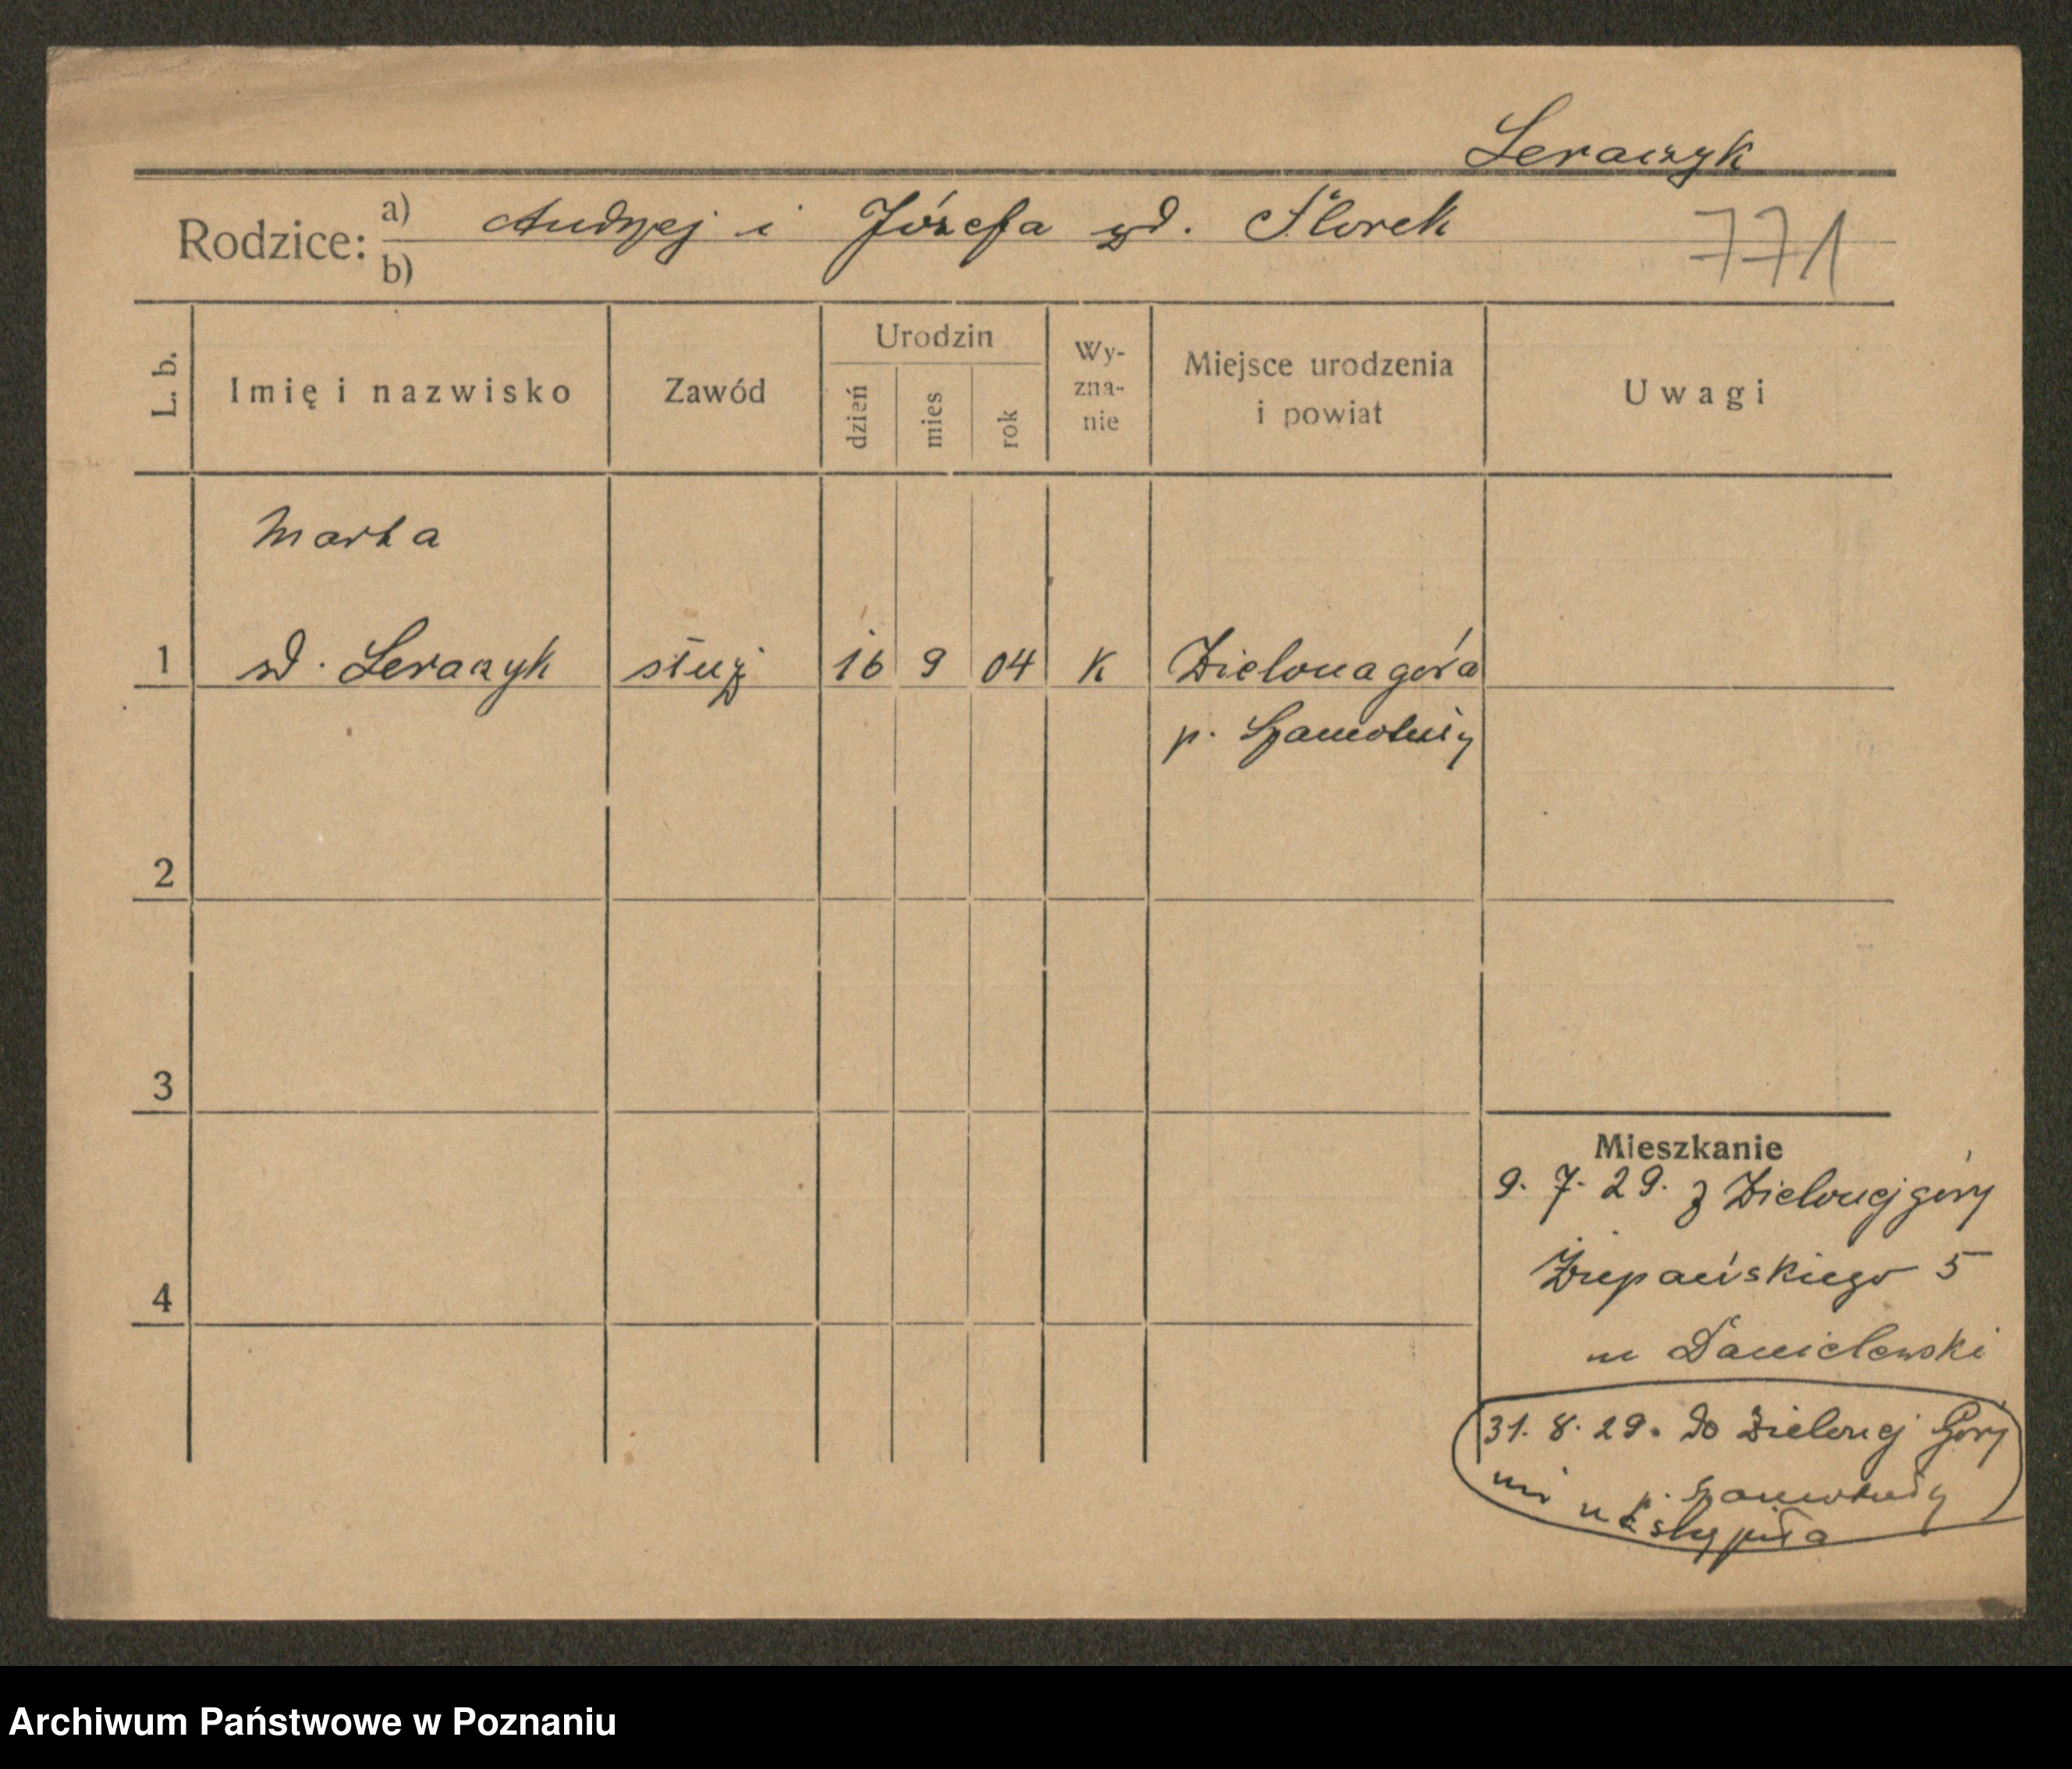 Leraczyk
Rodzice: a) Andrzej i Józefa zd. Florek
b)
771
L. b. Imię i nazwisko Zawód Urodzin dzień mies rok Wy-zna-nie Miejsce urodzenia i powiat Uwagi
Marta
1 zd. Leraczyk służ 16 9 04 K Zielonagóra
p. Szamotuły
2
3
4
Mieszkanie
9. 7. 29. z Zielonejgóry
5
m Danielewski
31. 8. 29. do Zielonej Góry
p. Szamotuły
nie nastąpiła
Archiwum Państwowe w Poznaniu